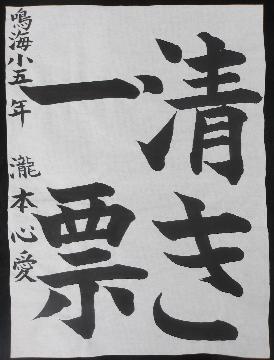 清き
一票
鳴海小五年 瀧本心愛